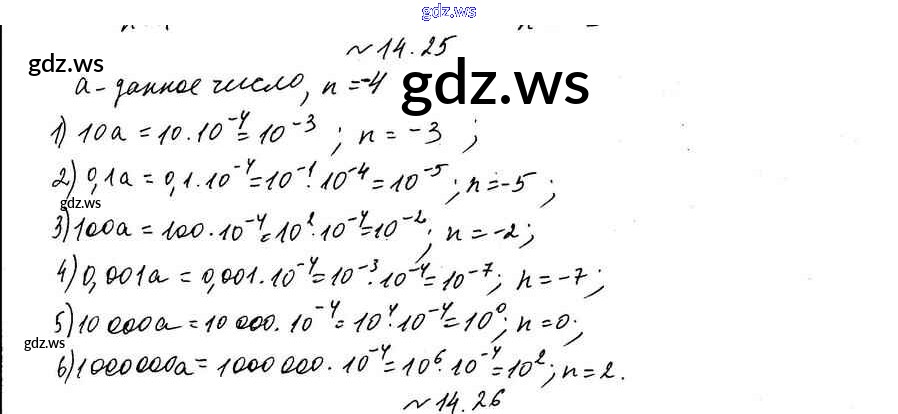 gdz.ws
№ 14.25
gdz.ws
a - данное число, n = -4
gdz.ws
1) 10a = 10 · 10⁻⁴ = 10⁻³ ; n = -3 ;
2) 0,1a = 0,1 · 10⁻⁴ = 10⁻¹ · 10⁻⁴ = 10⁻⁵ ; n = -5 ;
gdz.ws
3) 100a = 100 · 10⁻⁴ = 10² · 10⁻⁴ = 10⁻² ; n = -2 ;
4) 0,001a = 0,001 · 10⁻⁴ = 10⁻³ · 10⁻⁴ = 10⁻⁷ ; n = -7 ;
5) 10 000a = 10 000 · 10⁻⁴ = 10⁴ · 10⁻⁴ = 10⁰ ; n = 0 ;
gdz.ws
6) 1000 000a = 1000 000 · 10⁻⁴ = 10⁶ · 10⁻⁴ = 10² ; n = 2.
№ 14.26